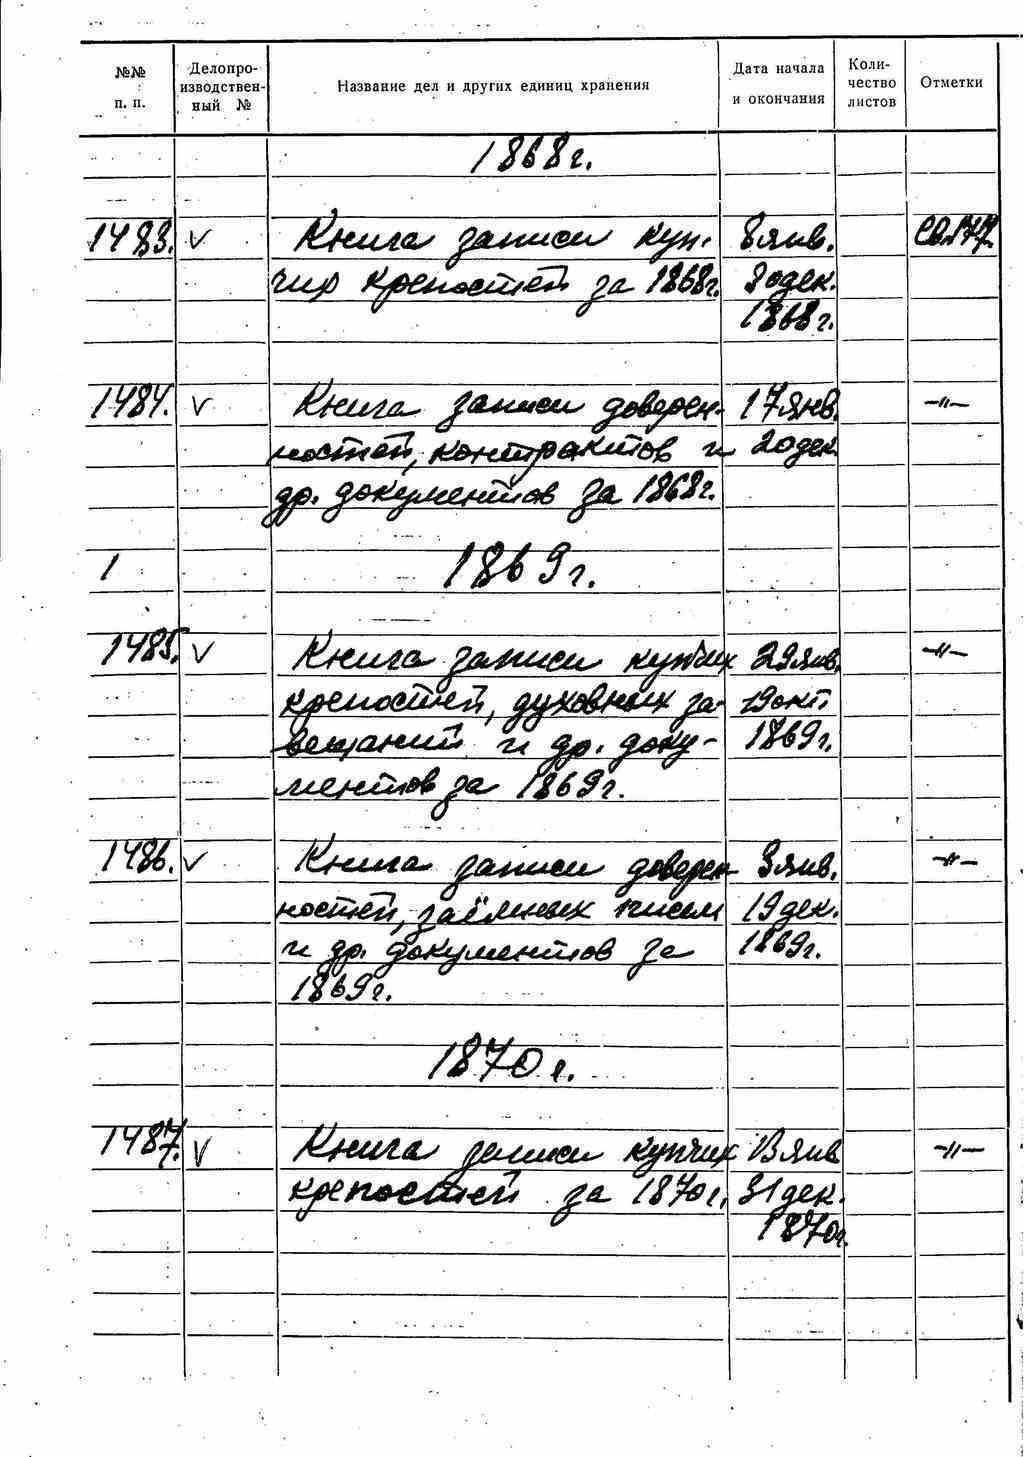 №№ п. п. Делопро-изводствен-ный № Название дел и других единиц хранения Дата начала и окончания Коли-чество листов Отметки
1868г.
1483. V Книга записи куп- 8 янв.
чих крепостей за 1868г. 30 дек.
1868г.
1484. V Книга записи доверен- 17 янв. -"-
ностей, контрактов и 20 дек.
др. документов за 1868г.
1 1869г.
1485. V Книга записи купчих 29 янв. -"-
крепостей, духовных за- 19 окт.
вещаний и др. доку- 1869г.
ментов за 1869г.
1486. V Книга записи доверен- 3 янв. -"-
ностей, заёмных писем 19 дек.
и др. документов за 1869г.
1869г.
1870г.
1487. V Книга записи купчих 13 янв. -"-
крепостей за 1870г. 31 дек.
1870г.